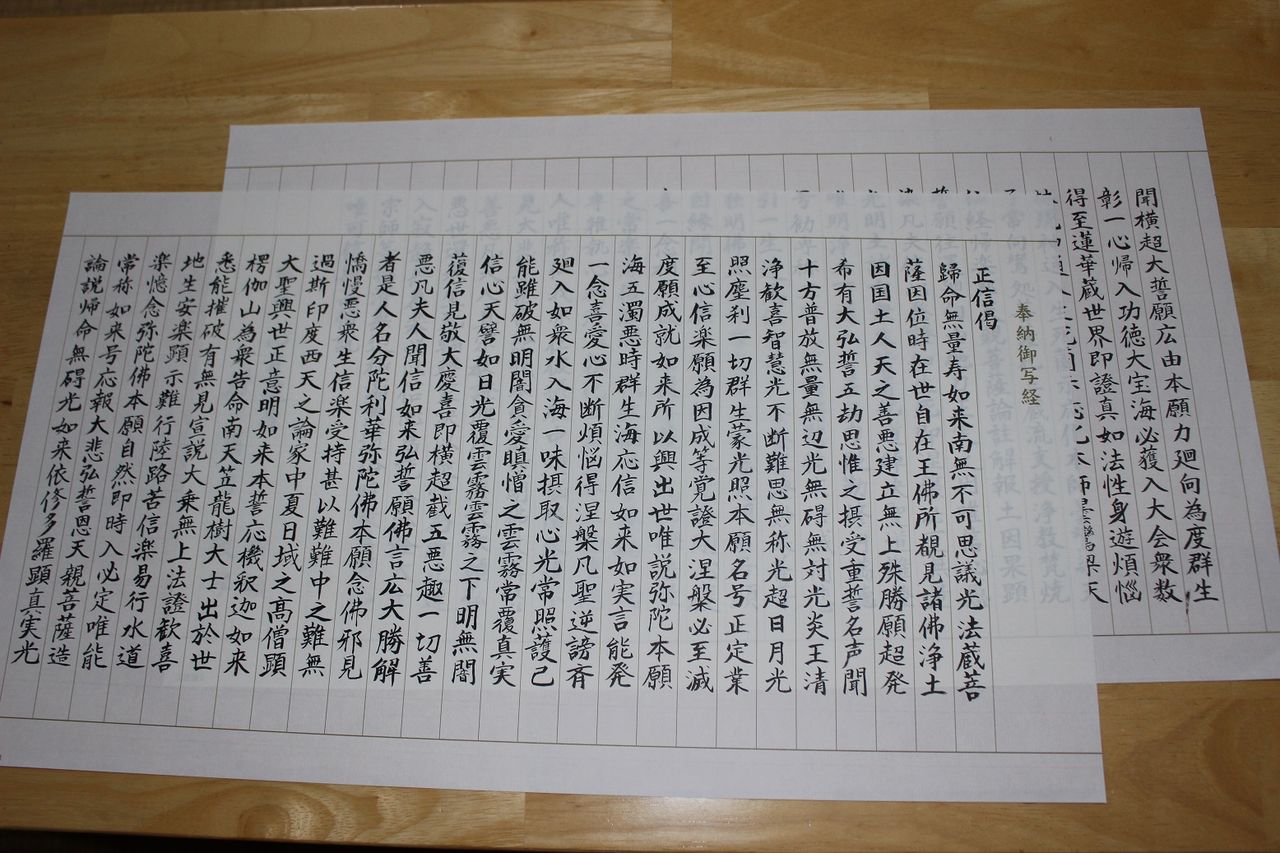 奉納御写経
正信偈
歸命無量寿如来南無不可思議光法蔵菩
薩因位時在世自在王佛所覩見諸佛浄土
因国土人天之善悪建立無上殊勝願超発
希有大弘誓五劫思惟之摂受重誓名声聞
十方普放無量無辺光無碍無対光炎王清
浄歓喜智慧光不断難思無称光超日月光
照塵刹一切群生蒙光照本願名号正定業
至心信楽願為因成等覚證大涅槃必至滅
度願成就如来所以興出世唯説弥陀本願
海五濁悪時群生海応信如来如実言能発
一念喜愛心不断煩悩得涅槃凡聖逆謗斉
廻入如衆水入海一味摂取心光常照護已
能雖破無明闇貪愛瞋憎之雲霧常覆真実
信心天譬如日光覆雲霧雲霧之下明無闇
獲信見敬大慶喜即横超截五悪趣一切善
悪凡夫人聞信如来弘誓願佛言広大勝解
者是人名分陀利華弥陀佛本願念佛邪見
憍慢悪衆生信楽受持甚以難難中之難無
過斯印度西天之論家中夏日域之高僧顕
大聖興世正意明如来本誓応機釈迦如来
楞伽山為衆告命南天竺龍樹大士出於世
悉能摧破有無見宣説大乗無上法證歓喜
地生安楽顕示難行陸路苦信楽易行水道
楽憶念弥陀佛本願自然即時入必定唯能
常称如来号応報大悲弘誓恩天親菩薩造
論説帰命無碍光如来依修多羅顕真実光
聞横超大誓願広由本願力廻向為度群生
彰一心帰入功徳大宝海必獲入大会衆数
得至蓮華蔵世界即證真如法性身遊煩悩